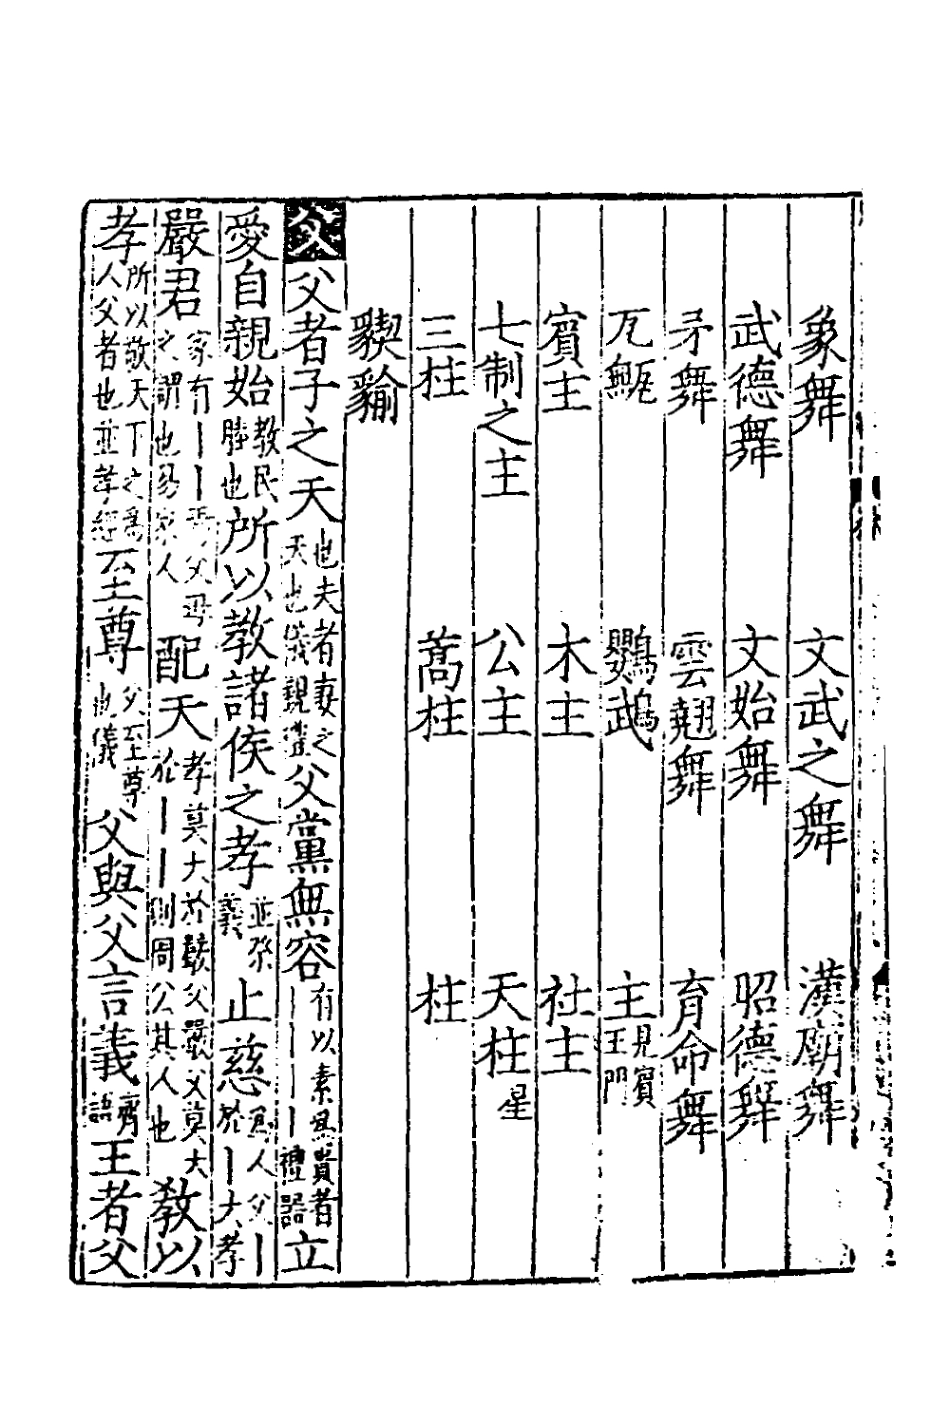 象舞 文武之舞 漢廟舞
武德舞 文始舞 昭德舞
矛舞 雲翹舞 育命舞
瓦甒 鸚鵡 主見賓王門
賓主 木主 社主
七制之主 公主 天柱星
三柱 蒿柱 柱
䝟貐
父 父者子之天也夫者妻之天也儀親禮父黨無容有以素爲貴者丨丨丨丨禮器立
愛自親始教民睦也所以教諸侯之孝並祭義止慈爲人父丨於丨大孝
嚴君家有丨丨焉父母之謂也易家人配天孝莫大於嚴父嚴父莫大於丨丨則周公其人也教以
孝所以敬天下之爲人父者也並孝經至尊父至尊也儀父與父言義齊語王者父